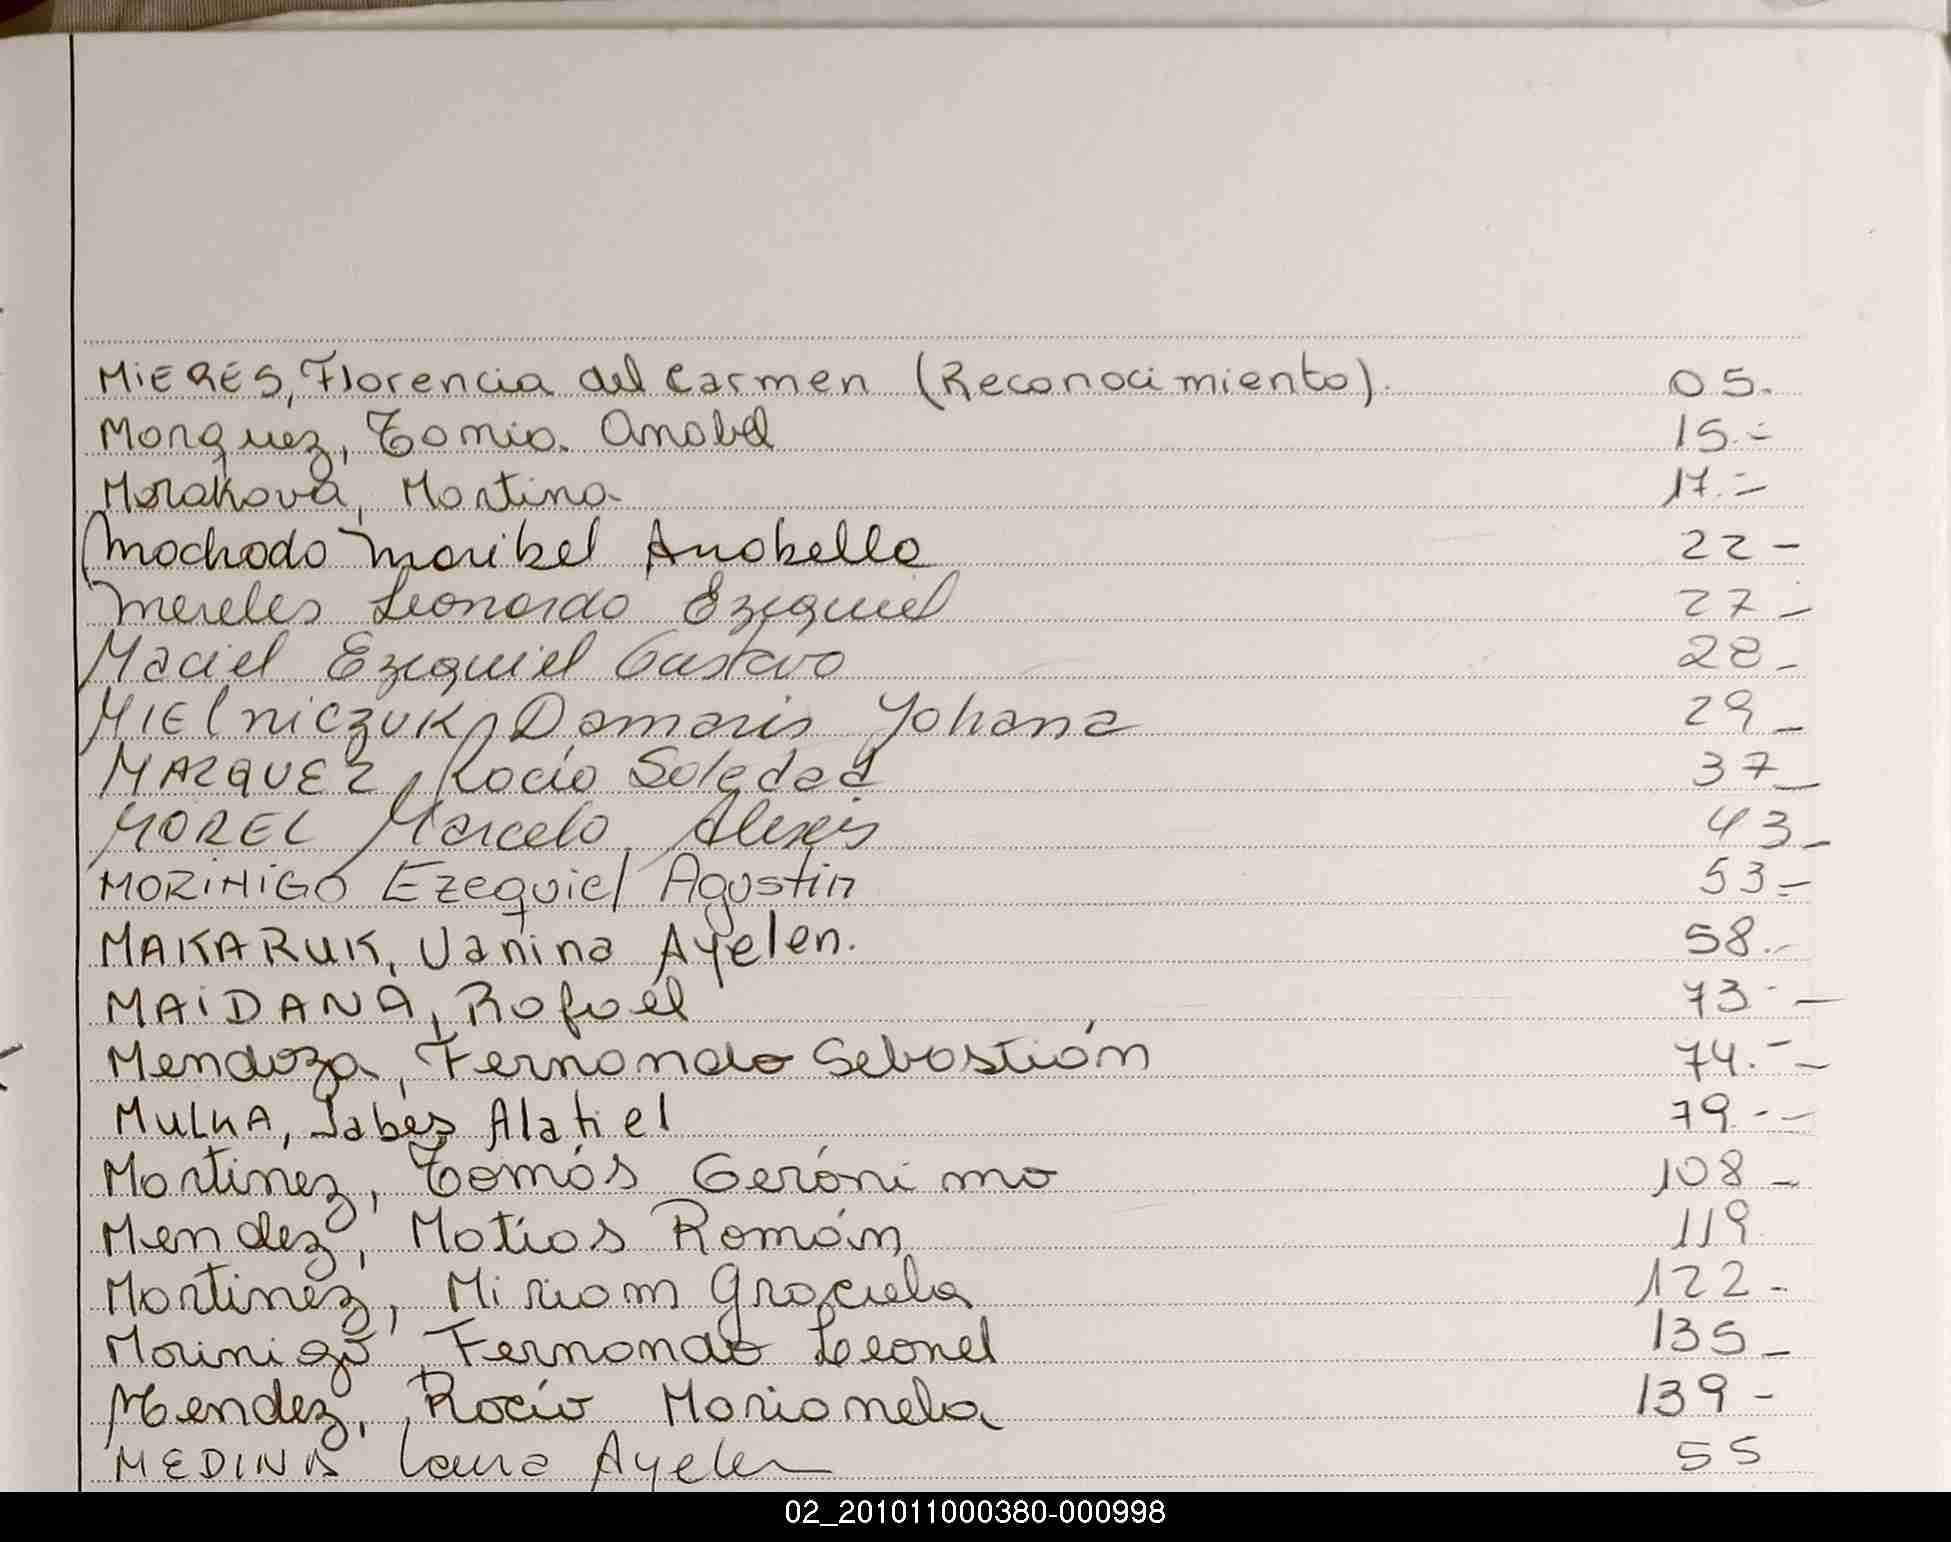 MIERES, Florencia del Carmen (Reconocimiento). 05.
Marquez, Tamia Anabel 15.-
Morakova, Martina 17.-
Machado Maribel Anabella 22-
Mereles Leonardo Ezequiel 27-
Maciel Ezequiel Gustavo 28-
MIElniczuk, Damaris Yohana 29-
MARQUEZ, Rocio Soledad 37-
MOREL Marcelo Alexis 43-
MORINIGO Ezequiel Agustin 53-
MAKARUK, Vanina Ayelen. 58.-
MAIDANA, Rafael 73-
Mendoza, Fernando Sebastián 74.-
MULKA, Jabes Alatiel 79.-
Martinez, Tomás Gerónimo 108-
Mendez, Matias Román 119
Martinez, Miriam Graciela 122-
Morinigo, Fernando Leonel 135-
Mendez, Rocío Marianela 139-
MEDINA Laura Ayelen 55
02_201011000380-000998